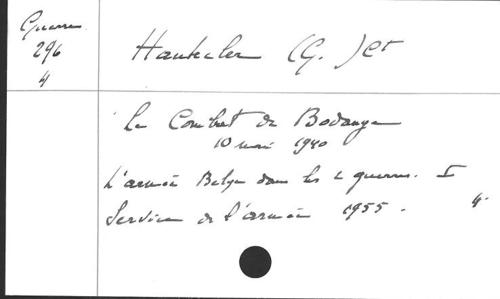 Guerre
296
4
Hautecler (G.) Ct
Le Combat de Bodange
10 mai 1940
L'armée Belge dans les 2 guerres. I
Service de l'armée 1955. 4°